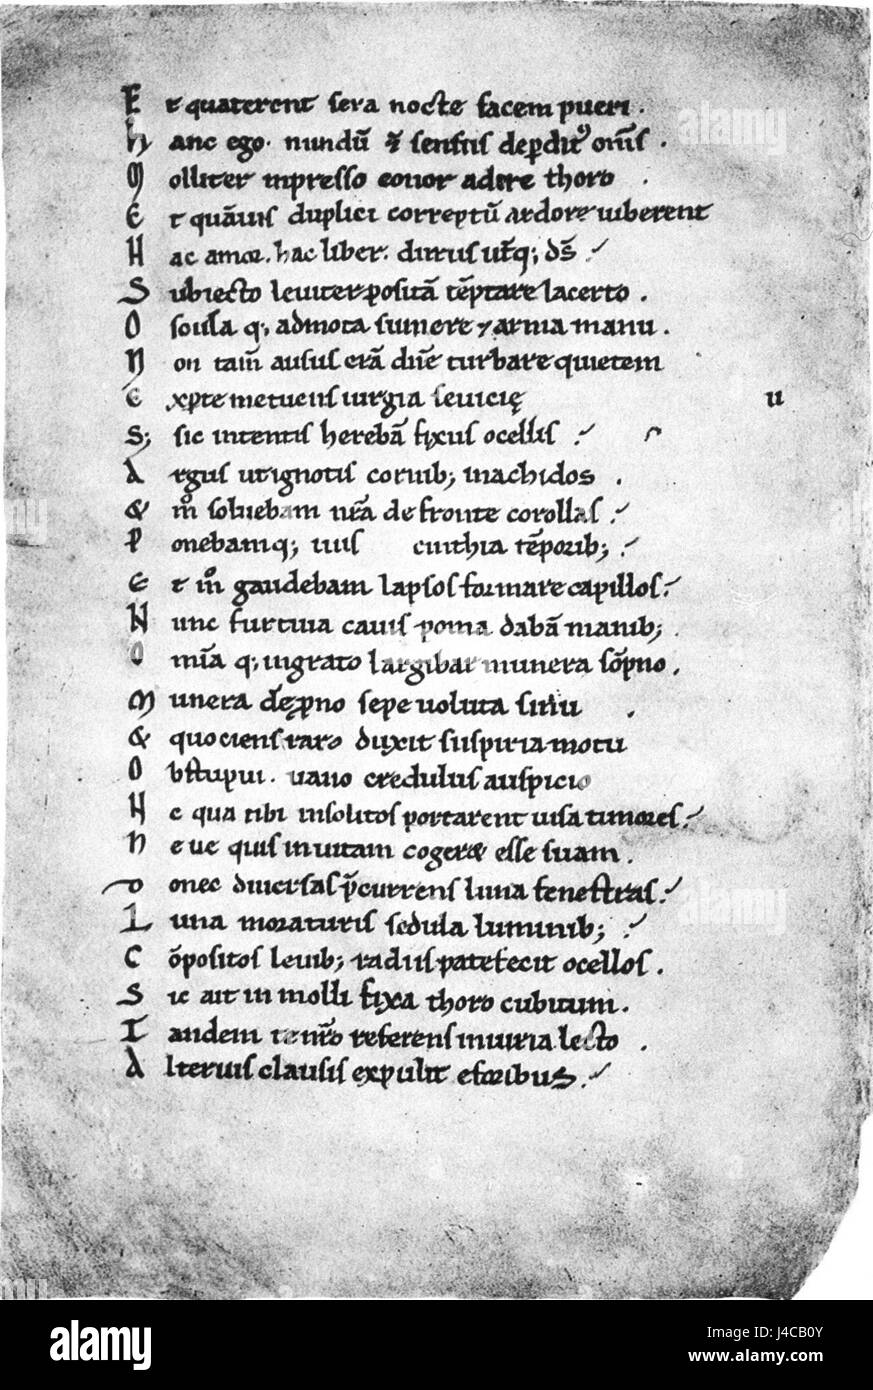 Et quaterent sera nocte facem pueri.
hanc ego. nundū & sensus dep̱ditꝰ om̄s.
Molliter inpresso conor adire thoro.
Et quāuis duplici correptū ardore iuberent
Hac amor. hac liber. durus ut̄q; ds̄
Subiecto leuiter positā tēptare lacerto.
Osculaq; admota sumere & arma manu.
Non tam̄ ausus erā dn̄e turbare quietem
Exp̱te metuens iurgia seuicię
u
S; sic intentis herebā fixus ocellis
Argus ut ignotis cornib; inachidos.
& m̊ soluebam nr̄a de fronte corollas
Ponebamq; tuis cinthia tēporib;
Et m̊ gaudebam lapsos formare capillos
Nunc furtiua cauis poma dabā manib;.
Omīa q; ingrato largibar munera sōpno.
Munera de p̱no sepe uoluta sinu.
& quociens raro duxit suspiria motu
Obstupui. uano credulus auspicio
Ne qua tibi insolitos portarent uisa timores
Neue quis inuitam cogeret esse suam.
Donec diuersas p̄currens luna fenestras
Luna moraturis sedula luminib;
Cōpositos leuib; radiis patefecit ocellos.
Sic ait in molli fixa thoro cubitum.
Tandem te nr̄o referens iniuria lecto.
Alterius clausis expulit e foribus
alamy
Image ID: J4CB0Y
www.alamy.com